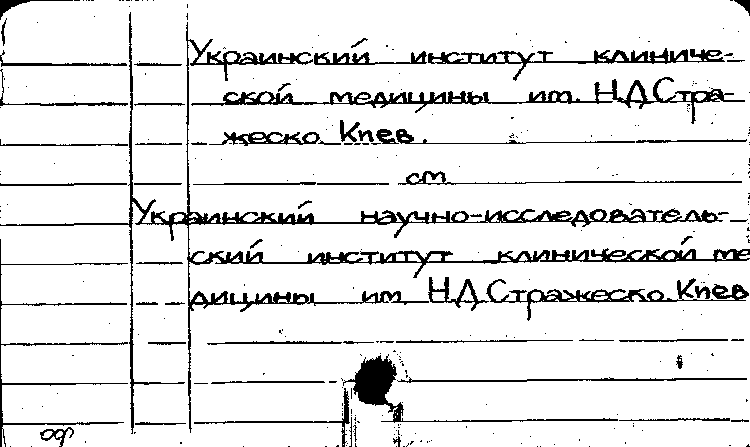 Украинский институт клиниче-
ской медицины им. Н.Д.Стра-
жеско. Киев.
см
Украинский научно-исследователь-
ский институт клинической ме
дицины им. Н.Д.Стражеско. Киев